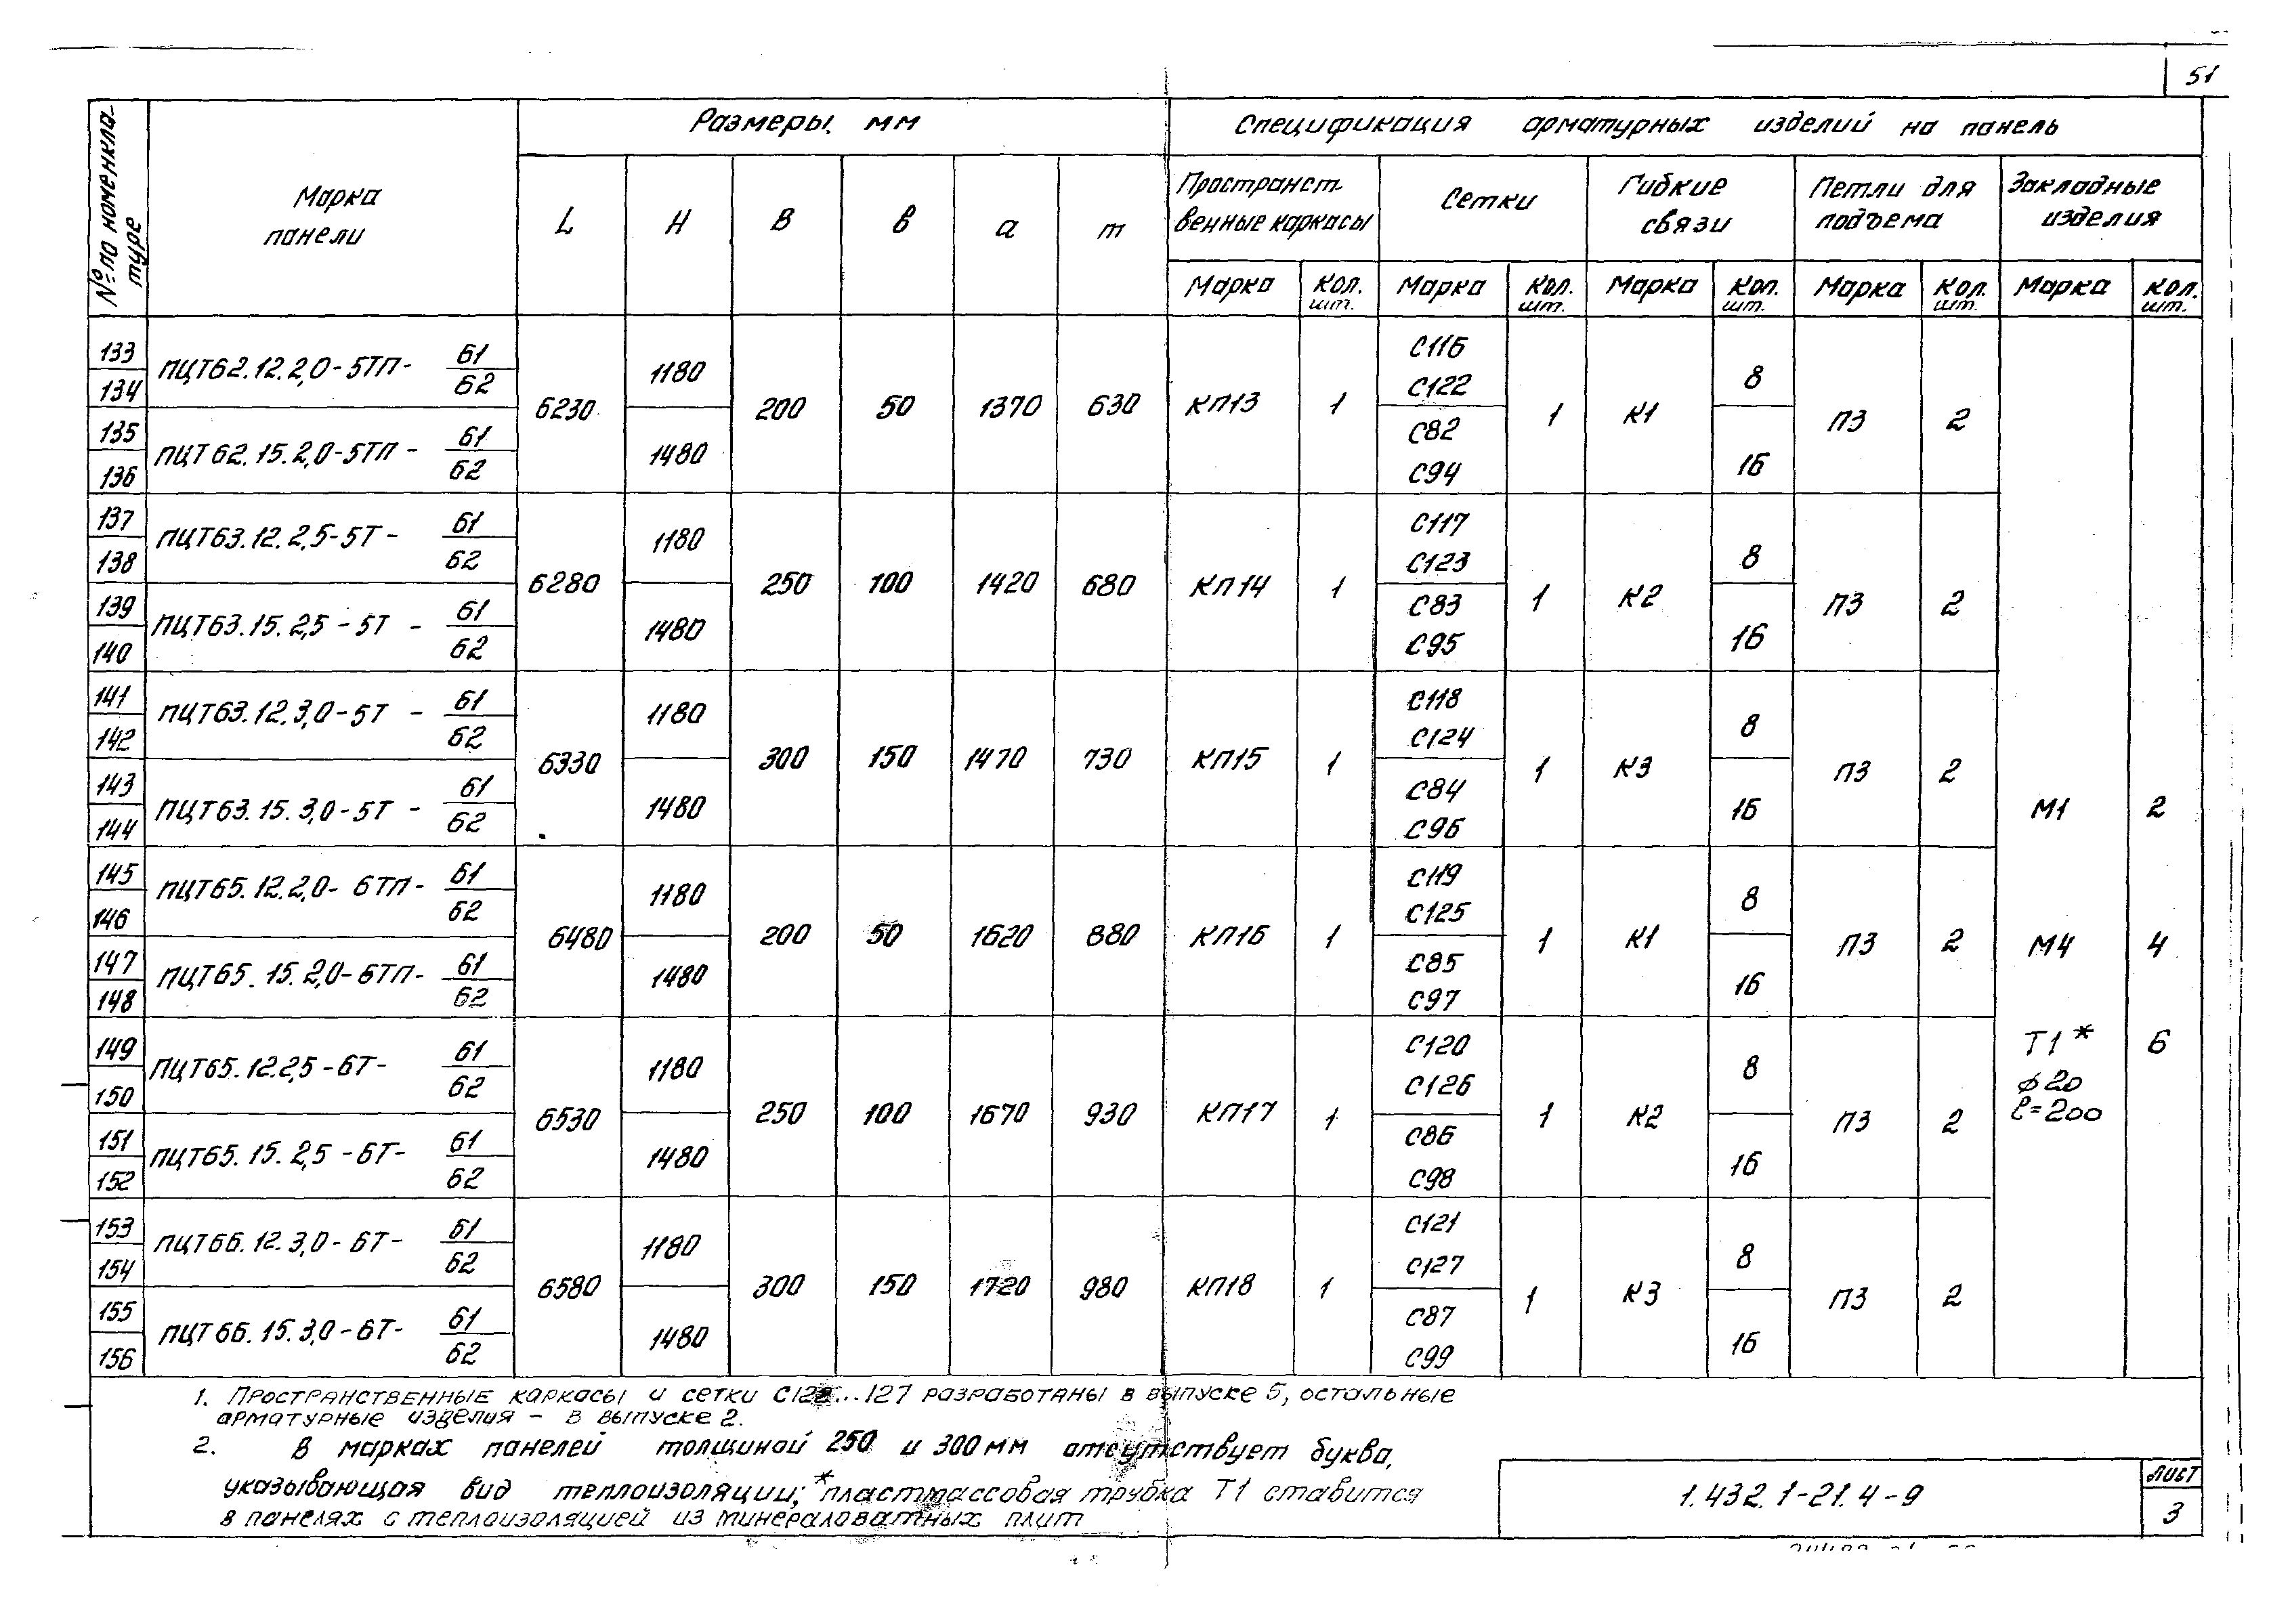 51
№ по номенкла-
туре
Марка
панели
Размеры, мм
Спецификация арматурных изделий на панель
L H В в а m
Пространст-
венные каркасы
Сетки
Гибкие
связи
Петли для
подъема
Закладные
изделия
Марка Кол. шт. Марка Кол. шт. Марка Кол. шт. Марка Кол. шт. Марка Кол. шт.
133 ПЦТ62.12.2,0-5ТП- б1 6230 1180 200 50 1370 630 КП13 1 С116 1 К1 8 П3 2
134 б2 С122
135 ПЦТ62.15.2,0-5ТП- б1 1480 С82 16
136 б2 С94
137 ПЦТ63.12.2,5-5Т- б1 6280 1180 250 100 1420 680 КП14 1 С117 1 К2 8 П3 2
138 б2 С123
139 ПЦТ63.15.2,5-5Т- б1 1480 С83 16
140 б2 С95
141 ПЦТ63.12.3,0-5Т- б1 6330 1180 300 150 1470 730 КП15 1 С118 1 К3 8 П3 2
142 б2 С124
143 ПЦТ63.15.3,0-5Т- б1 1480 С84 16 М1 2
144 б2 С96
145 ПЦТ65.12.2,0-6ТП- б1 6480 1180 200 50 1620 880 КП16 1 С119 1 К1 8 П3 2
146 б2 С125
147 ПЦТ65.15.2,0-6ТП- б1 1480 С85 16 М4 4
148 б2 С97
149 ПЦТ65.12.2,5-6Т- б1 6530 1180 250 100 1670 930 КП17 1 С120 1 К2 8 П3 2 Т1* 6
150 б2 С126 ф20
ℓ=200
151 ПЦТ65.15.2,5-6Т- б1 1480 С86 16
152 б2 С98
153 ПЦТ66.12.3,0-6Т- б1 6580 1180 300 150 1720 980 КП18 1 С121 1 К3 8 П3 2
154 б2 С127
155 ПЦТ66.15.3,0-6Т- б1 1480 С87 16
156 б2 С99
1. Пространственные каркасы и сетки С122...127 разработаны в выпуске 5, остальные
арматурные изделия - в выпуске 2.
2. В марках панелей толщиной 250 и 300 мм отсутствует буква,
указывающая вид теплоизоляции; *пластмассовая трубка Т1 ставится
в панелях с теплоизоляцией из минераловатных плит
1.432.1-21.4-9
Лист
3